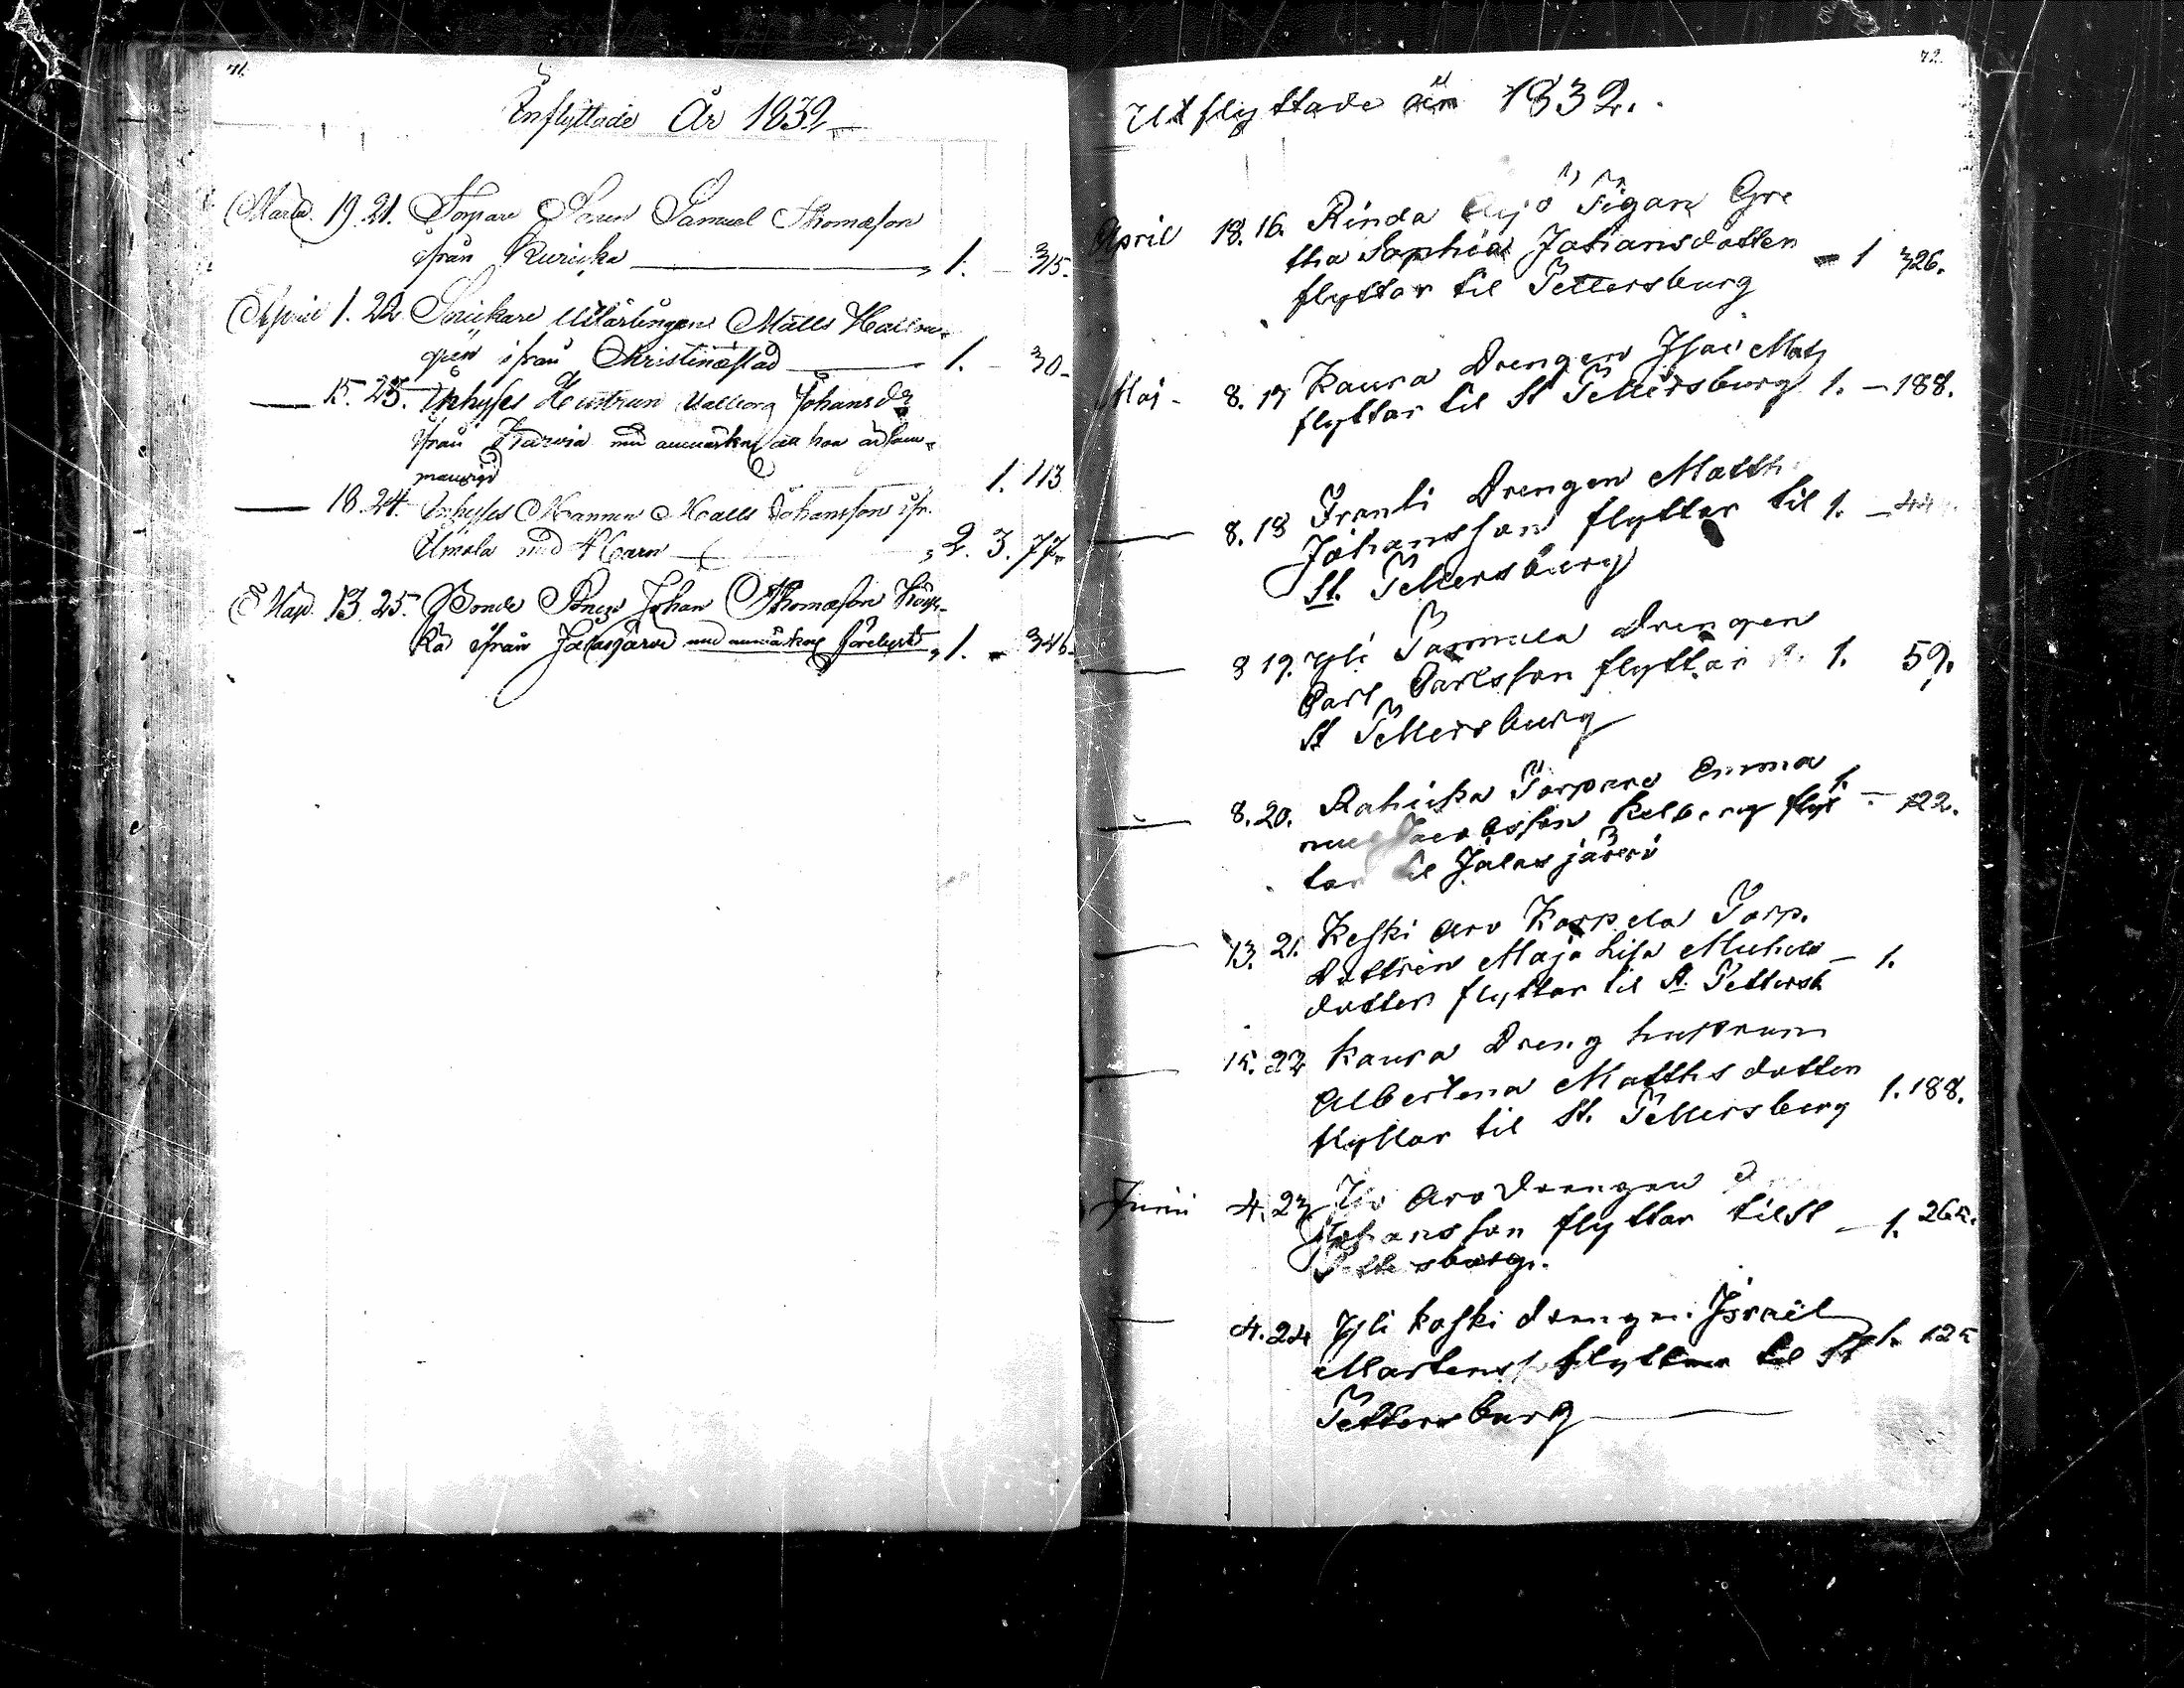 71.
Inflyttade År 1832
Martii 19. 21. Torpare Sonen Samuel Thomasson
ifrån Kuricka 1. 315.
April 1. 22 Snickare Mattts Hallon-
gren ifrån Christinæstad 1. 30
15. 23. Inhyses Hustrun Walborg Johansdr
ifrån Karvia med anmärkn att hon är
1. 113
18. 24. Inhyses Mannen Matts Johansson ifr.
Ilmola med Barn 2. 3. 77
Maji 13 25. Bonde Sonen Johan Thomasson
ifrån Jalasjärvi med anmärkng 1. 346.
72.
Utflyttade år 1832.
April 18. 16. Rinda Pigan Gre
tha Sophia Johansdotter 1 326.
flyttar til Pettersburg
Maj 8. 17 Kaura Drengen Isac Mats
flyttar til St Pettersburg 1. 188.
8. 18 Drengen Matth
Johansson flyttar til 1. 44
St. Pettersburg
8 19. Yli Pannula Drengen
Carl Carlsson flyttar 1. 59.
St Pettersburg
8. 20. Rahicka Torpare Emma
nuel Jacobsson flyt 1. 122.
tar til Jalasjärvi
13. 21. Keski Aro Karpela Torp.
Dottren Maja Lisa Michels 1.
dotter flyttar til St. Pettersb
15. 22 Kaura Dreng hustrun
Albertina Matths dotter 1. 188.
flyttar til St. Pettersberg
Junii 4. 23 Aro Drengen
Johansson flyttar til St 1. 265.
Pettersburg.
4. 24 Yli Koski drengen Israel
Martenss flyttar til St 1. 125
Pettersburg